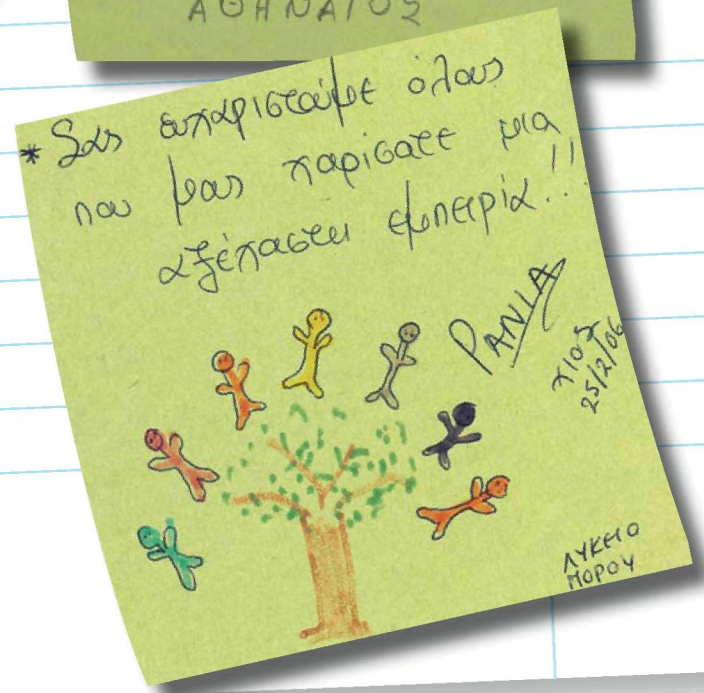 ΑΘΗΝΑΙΟΣ
* Σας ευχαριστούμε όλους
που μας χαρίσατε μια
αξέχαστει εμπειρία!!
ΡΑΝΙΑ
ΧΙΟΣ
25/2/06
ΛΥΚΕΙΟ
ΜΟΡΟΥ